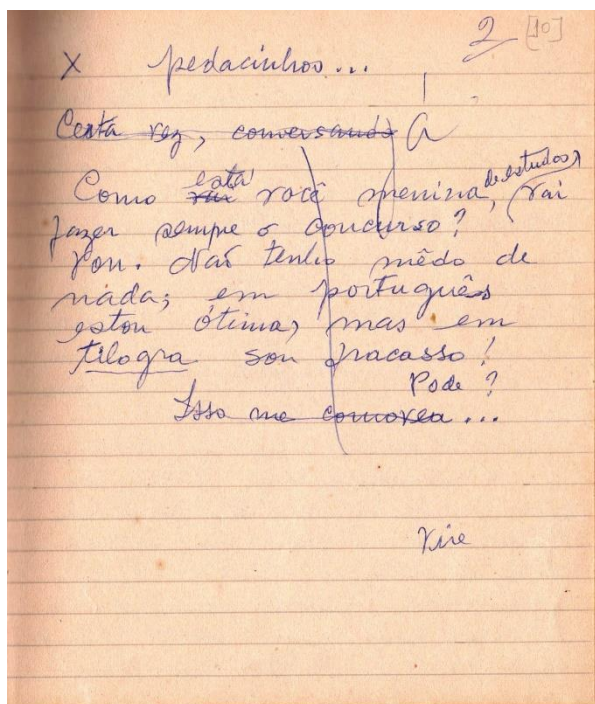 2 [10]
X pedacinhos...
Certa vez, conversando a
Como vai está você menina, de estudos, vai
fazer sempre o concurso?
Vou. Não tenho mêdo de
nada; em português
estou ótima, mas em
tilogra sou fracasso!
Pode?
Isso me comoveu...
Vire